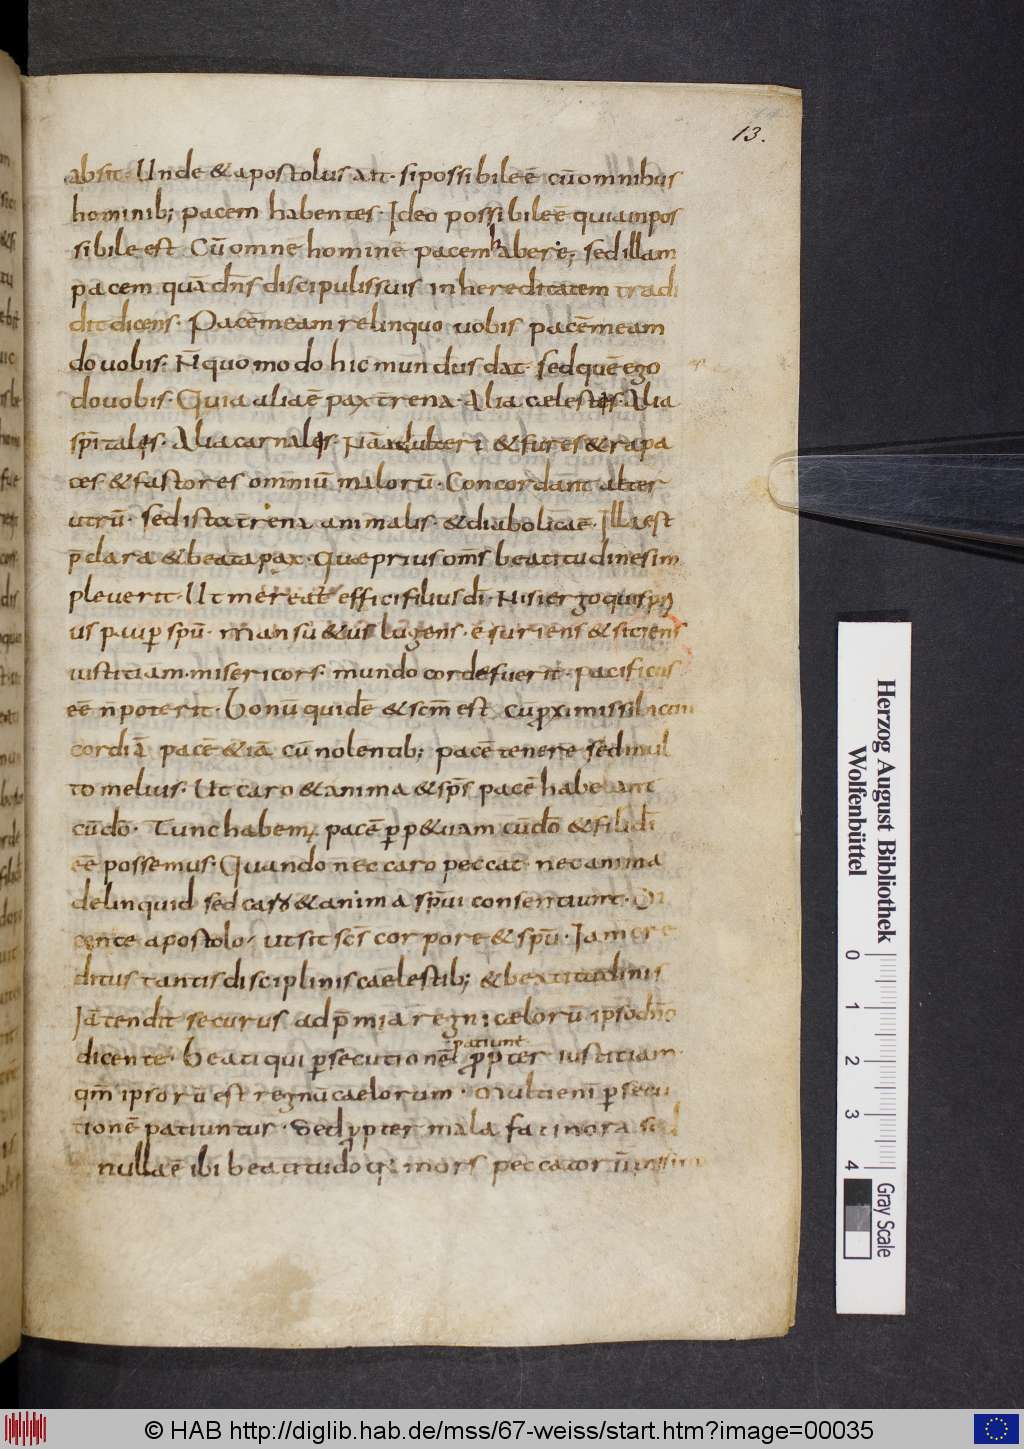 13.
absit· Unde & apostolus ait· si possibile ē cū omnibus
hominib; pacem habentes· Ideo possibile ē quia inpos
sibile est Cū omnē hominē pacem habere; sed illam
pacem quā dn̄s discipulis suis in hereditatem tradi
dit dicens· Pacē meam relinquo vobis pacē meam
do vobis· N̄ quomodo hic mundus dat· sed quē ego
do vobis· Quia alia ē pax trēna· Alia cælestis· Alia
sp̄italis· Alia carnalis· Nā adulteri & fures & rapa
ces & fastores omniū malorū· Concordant alter
utrū· sed ista trēna animalis· & diabolica ē· Illa est
p̄clara & beata pax· Que prius om̄s beatitudines im
pleverit· Ut mereat effici filius dī· Nisi ergo quis pri
us paup sp̄u· mansu&us lugens· esuriens & sitiens
iustitiam· misericors· mundo corde fuerit· pacificus
eē n̄ poterit· Bonū quidē & sc̄m est cū proximis sibi
cordia pacē & iā cū nolentib; pacē tenere sed mul
to melius· Ut caro & anima & sp̄s pacē habeant
cū dō· Tunc habem; pacē perp&uam cū dō & filii dī
eē possemus· Quando nec caro peccat· nec anima
delinquid sed caro & anima sp̄ui consentiunt·
cente apostolo· ut sit sc̄s corpore & sp̄u· Iam ere
ditus tantis disciplinis caelestib; & beatitudinis
Iā tendit securus ad p̄mia regni cælorū ipso dn̄o
dicente· Beati qui psecutionē patiunt propter iustitiam·
qm̄ ipsorū est regnū caelorum· Multi enī psecu
tionē patiuntur· Sed propter mala facinora sed
nulla ē ibi beatitudo q; mors peccatorū
Herzog August Bibliothek
Wolfenbüttel
0 1 2 3 4
Gray Scale
© HAB http://diglib.hab.de/mss/67-weiss/start.htm?image=00035